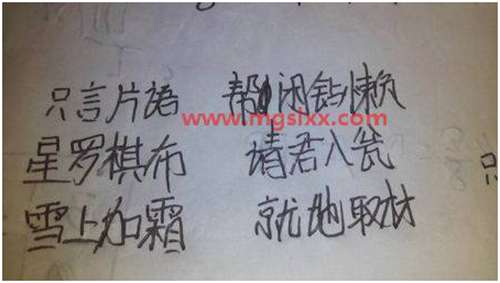 只言片語 帮闲钻懒
www.mgsixx.com
星罗棋布 请君入瓮
雪上加霜 就地取材
只